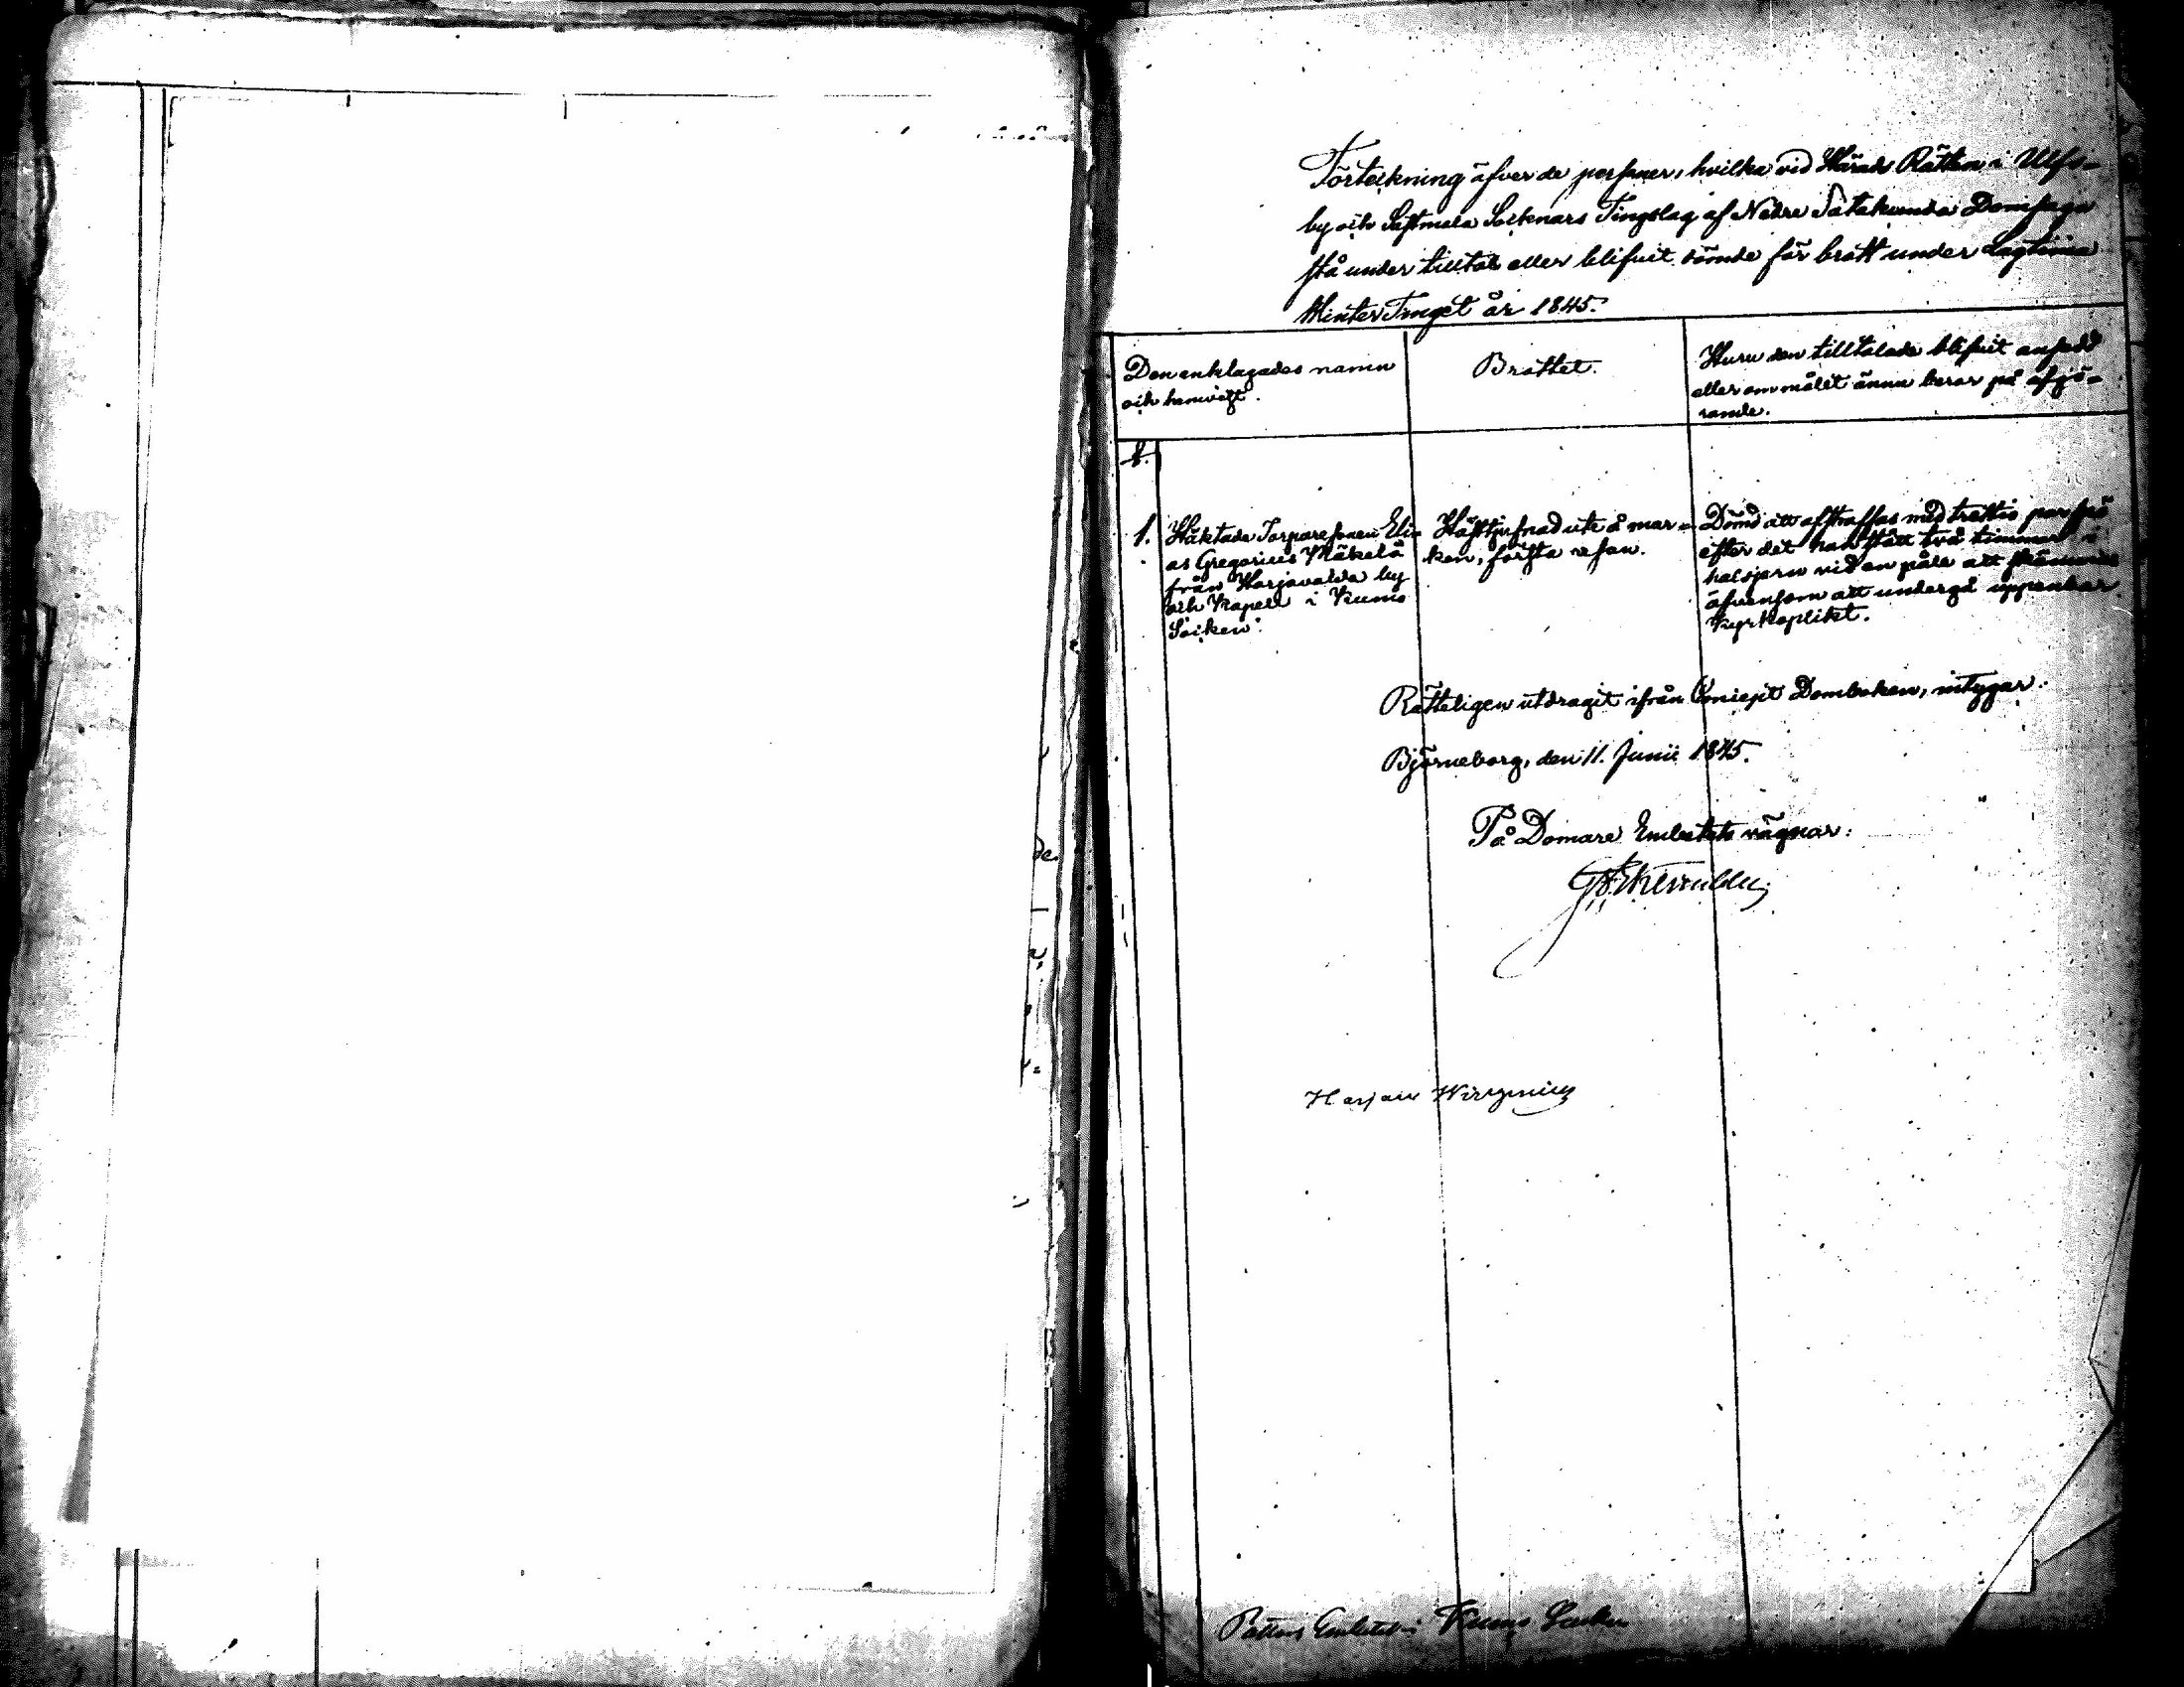 Förteckning öfver de personer, hvilka vid Härads Rätten i Ulfs-
by och Sastmola Socknars Tingslag af Nedre Satakunda Domsaga
stå under tilltal eller blifvit dömde för brott under Lagtima
Winter Tinget år 1845.
Den anklagades namn
och hemvist.
Brottet.
Huru den tilltalade blifvit ansedd
eller om målet ännu beror på afgö-
rande.
1.
Häktade Torparesonen Eli-
as Gregorius Mäkelä
från Harjavalda by
och Kapell i Kumo
Socken.
Hästtjufnad ute å mar-
ken, första resan.
Dömd att afstraffas med trettio par spö
efter det han stått två timmar i
halsjern vid en påle att skämmas
äfvensom att undergå uppenbar
Kyrkoplikt.
Rätteligen utdragit ifrån Domboken, intygar:
Björneborg, den 11. Junii 1845.
På Domare Embetets vägnar:
Pastors Embetet i Kumo Socken